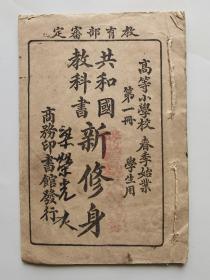 教育部審定
高等小學校 春季始業
第一冊 學生用
共和國
教科書
新修身
商務印書館發行